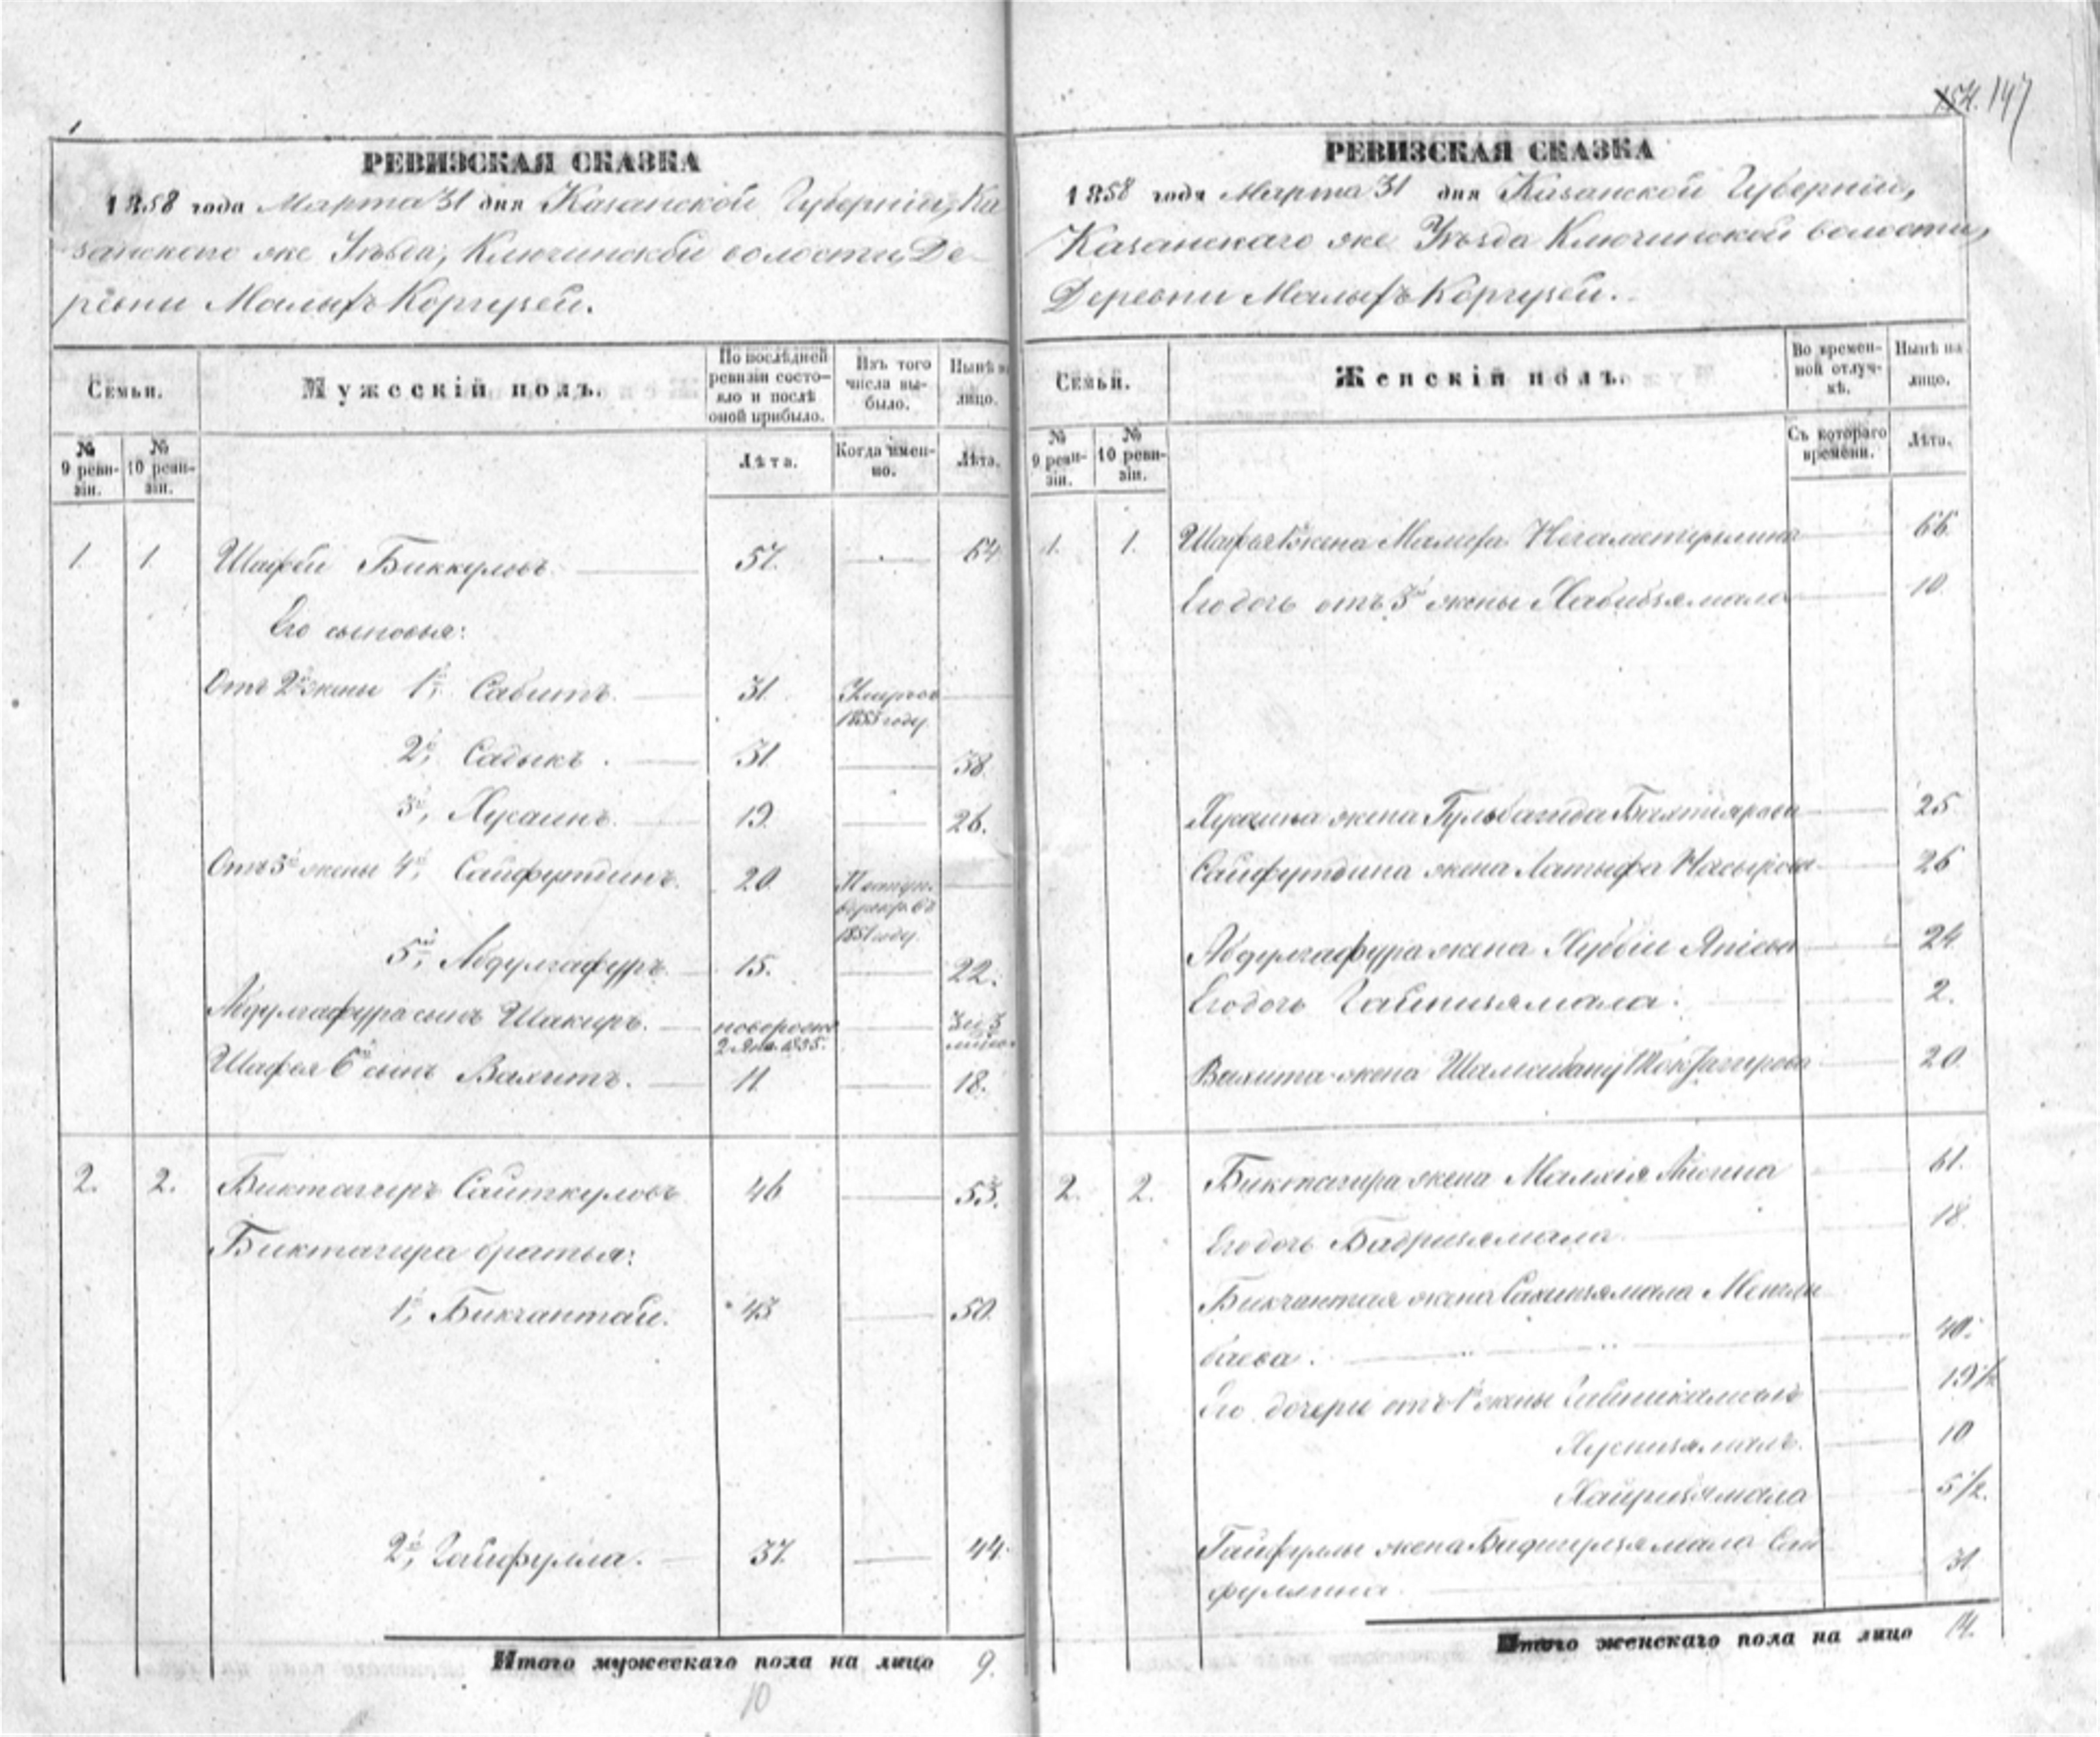 1
РЕВИЗСКАЯ СКАЗКА
1858 года Марта 31 дня Казанской Губерніи, Ка
занскаго же Уѣзда, Ключинской волости, Де-
ревни Малыхъ Коргузей.
Семьи.
Мужескій полъ.
По послѣдней
ревизіи состо-
яло и послѣ
оной прибыло.
Изъ того
числа вы-
было.
Нынѣ на
лицо.
№
9 реви-
зіи.
№
10 реви-
зіи.
Лѣта.
Когда имен-
но.
Лѣта.
1. 1. Шафѣй Биккуловъ 57. 64
Его сыновья:
Отъ 2й жены 1й, Сабитъ. 31. Умеръ въ
1853 году.
2й, Садыкъ. 31. 38
3й, Хусаинъ. 19. 26.
Отъ 3й жены 4й, Сайфутдинъ. 20.
1851 году.
5й, Абдулгафуръ. 15. 22.
Абдулгафура сынъ Шакиръ.
Шафѣя 6й сынъ Вахитъ. 11. 18.
2. 2. Биктагиръ Саиткуловъ 46 53.
Биктагира братья:
1й, Бикчантай. 43 50.
2й, Гайфулла. 37. 44.
Итого мужескаго пола на лицо 9.
10
154. 147
РЕВИЗСКАЯ СКАЗКА
1858 года Марта 31 дня Казанской Губерніи,
Казанскаго же Уѣзда Ключинской волости,
Деревни Малыхъ Коргузей.
Семьи.
Женскій полъ.
Во времен-
ной отлуч-
кѣ.
Нынѣ на
лицо.
№
9 реви-
зіи.
№
10 реви-
зіи.
Съ котораго
времени.
Лѣта.
1. 1. Шафѣя жена 66.
Его дочь отъ 3й жены Хабибзямала 10
Хусаина жена Гульбагида Бахтіярова 25
Сайфутдина жена Латыфа Насырова 26
Абдулгафура жена 24.
Его дочь Гайнизямала. 2.
Вахита жена 20.
2. 2. Биктагира жена 61.
Его дочь Бадризямала 18.
Бикчантая жена Сахипзямала Менгли
баева. 40.
Его дочери отъ 1й жены 19 1/2
Хуснизямалъ. 10
Хайризямала 5 1/2.
Гайфуллы жена Сай
фуллина 31
Итого женскаго пола на лицо 14.